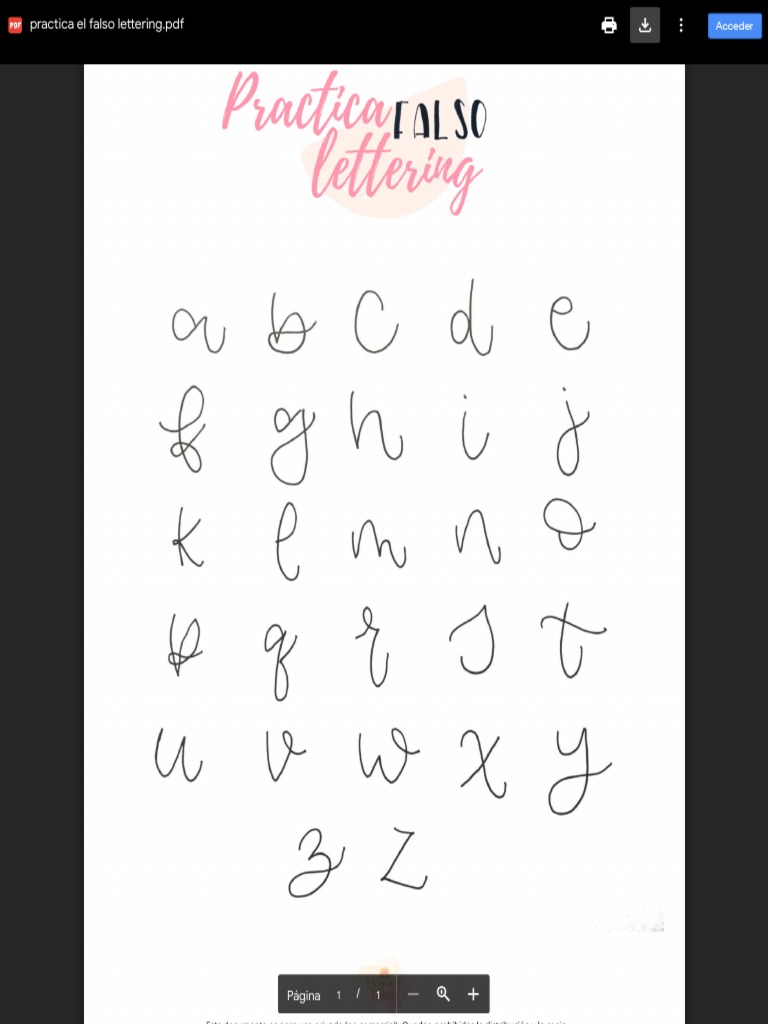 practica el falso lettering.pdf
Acceder
Practica FALSO
lettering
a b c d e
f g h i j
k l m n o
p q r s t
u v w x y
z z
Página 1 / 1